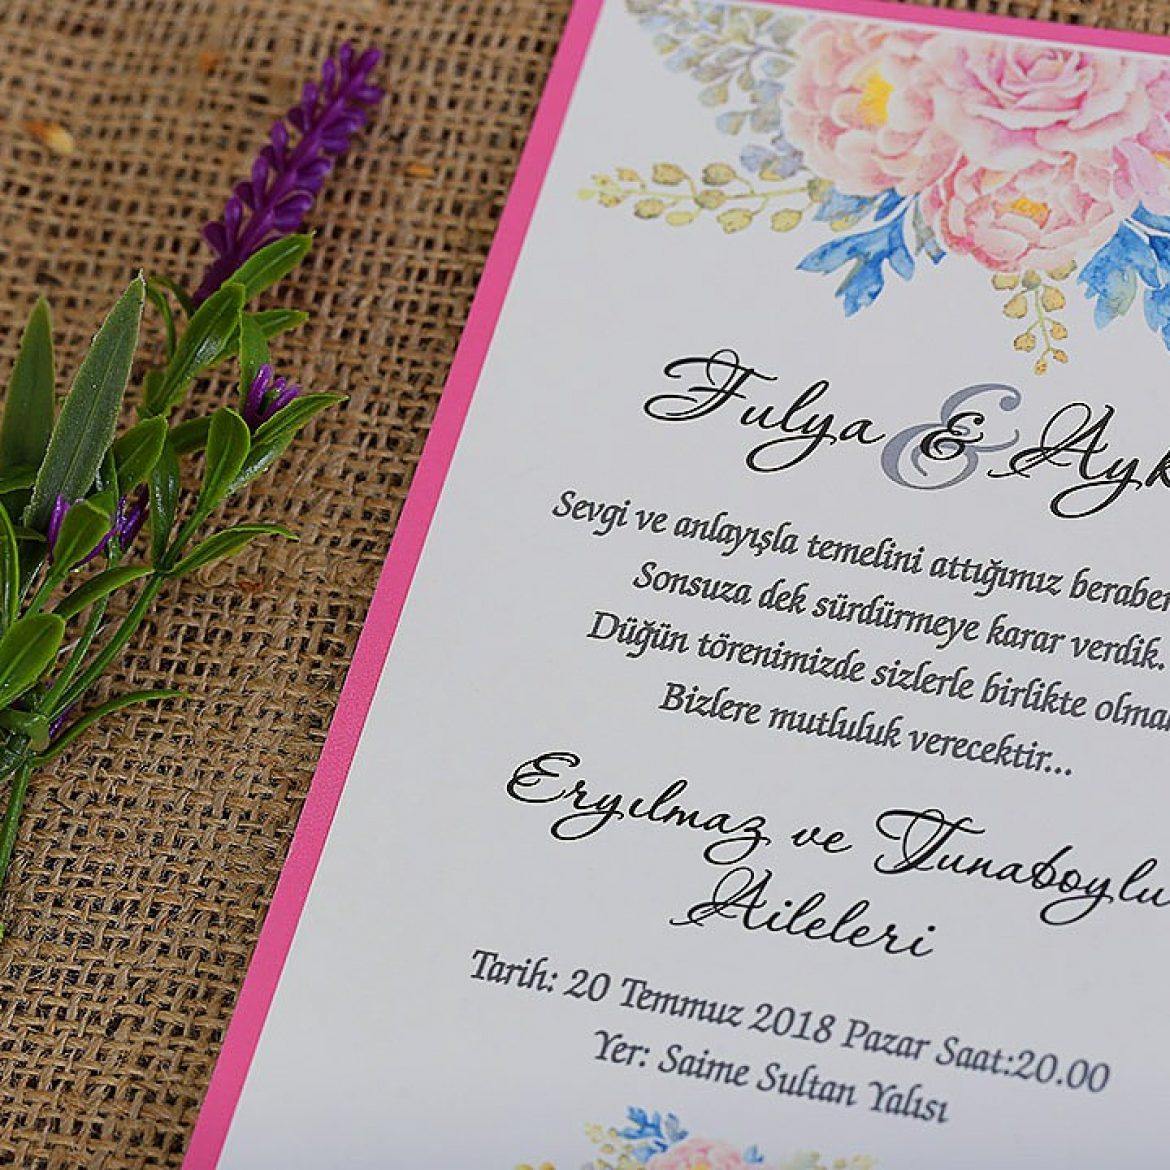 Fulya & Ayk
Sevgi ve anlayışla temelini attığımız beraber
Sonsuza dek sürdürmeye karar verdik.
Düğün törenimizde sizlerle birlikte olma
Bizlere mutluluk verecektir...
Eryılmaz ve Tunaboylu
Aileleri
Tarih: 20 Temmuz 2018 Pazar Saat:20.00
Yer: Saime Sultan Yalısı